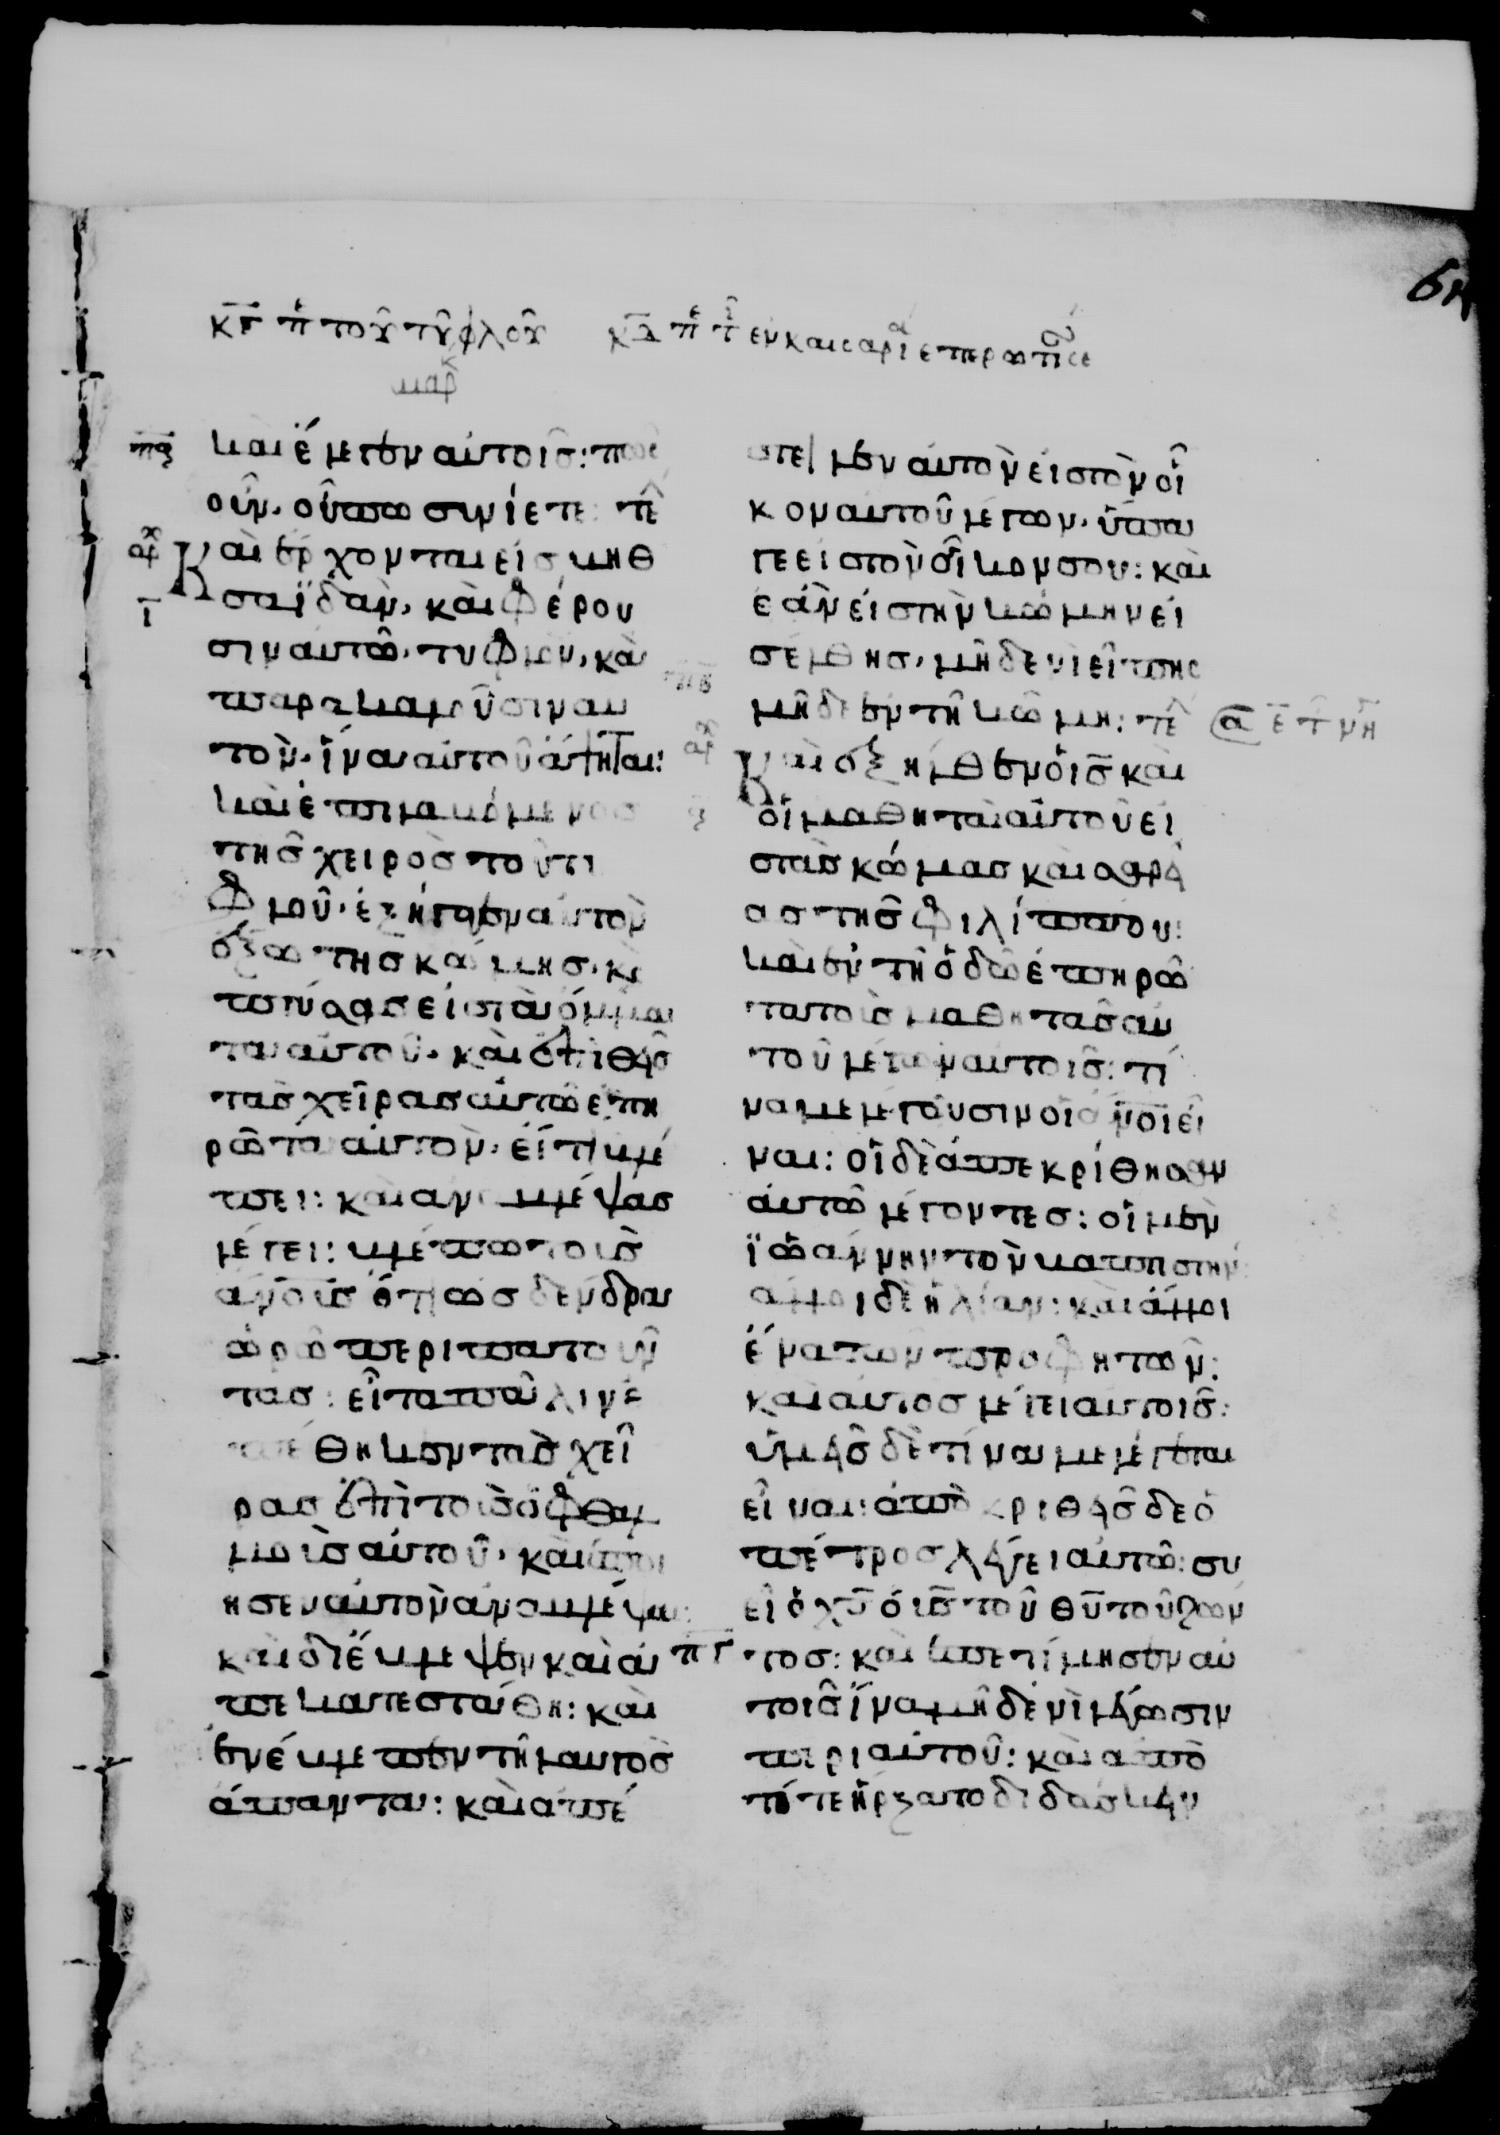 κγ π τοῦ τυφλοῦ κδ π τ ἐν καισαρί ἐπερωτήσε
μαρ
και ἔλεγεν αὐτοῖς: πῶς
οὖν. οὔπω συνίετε: τε
αρχ Καὶ ἔρχονται εἰς βηθ
σαϊδὰν, καὶ φέρου
σιν αὐτῶ. τυφλὸν, καὶ
παρακαλοῦσιν αυ
τὸν. ἵνα αὐτοῦ ἅψηται:
καὶ ἐπιλαβόμενος
τῆς χειρὸς τοῦ τυ
φλοῦ. ἐξήγαγεν αὐτὸν
ἔξω τῆς κώμης. κὲ
πτύσας εἰς τὰ ὄμμα
τα αὐτοῦ. καὶ ἐπιθεὶς
τὰς χεῖρας αὐτῶ ἐπη
ρῶτα αὐτὸν. εἴ τι βλέ
πει: καὶ αναβλέψας
λέγει: βλέπω τοὺς
ἀνοὺς ὅτι ὡς δένδρα
ὁρῶ περιπατοῦν
τας: εἶτα πάλιν ἐ
πέθηκεν τὰς χεῖ
ρας ἐπὶ τοὺς ὀφθαλ
μοὺς αὐτοῦ. καὶ ἐποί
ησεν αὐτὸν ἀναβλέψαι:
καὶ διέβλεψεν καὶ ἀ
πεκατεστάθη: καὶ
ἐνέβλεπεν τηλαυγῶς
ἅπαντα: καὶ ἀπέ
στειλεν αὐτὸν εἰς τὸν οἶ
κον αὐτοῦ λέγων. ὕπα
γε εἰς τὸν οἶκον σου: καὶ
ἐὰν εἰς τὴν κώμην εἰ
σέλθης, μηδενὶ εἴπης
μηδὲ ἐν τῆ κώμη: τε
αρχ Καὶ ἐξῆλθεν ὁ ις καὶ
οἱ μαθηταὶ αὐτοῦ εἰ
ς τὰς κώμας καισαρεί
ας τῆς φιλίππου:
καὶ ἐν τῆ ὁδῶ ἐπηρώ
τα τοὺς μαθητὰς αὐ
τοῦ λέγων αὐτοῖς: τί
να με λέγουσιν οἱ ἀνοι εἶ
ναι: οἱ δὲ ἀπεκρίθησαν
αὐτῶ λέγοντες: οἱ μὲν
ϊωάννην τὸν βαπτιστήν
ἄλλοι δὲ ἠλίαν: καὶ ἄλλοι
ἕνα τῶν προφητῶν:
καὶ αὐτὸς λέγει αὐτοῖς:
ὑμεῖς δὲ τίνα με λέγεται
εἶναι: ἀποκριθεὶς δὲ ὁ
πέτρος λέγει αὐτῶ: συ
εἶ ὁ χς ὁ υς τοῦ θυ τοῦ ζῶν
πγ τος: καὶ ἐπετίμησεν αὐ
τοῖς ἵνα μηδενὶ λέγωσιν
περὶ αὐτοῦ: καὶ ἀπὸ
τότε ἤρξατο διδάσκειν